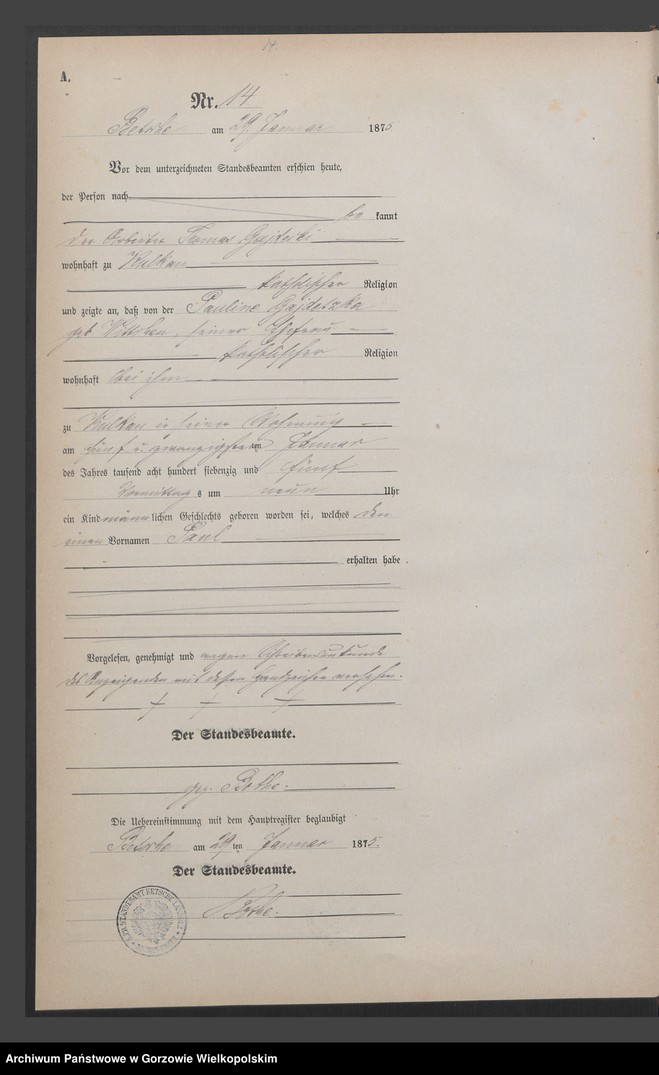 14.
A.
Nr. 14
Betsche am 29 Januar 1875
Vor dem unterzeichneten Standesbeamten erschien heute,
der Person nach
be kannt
der Arbeiter Tomas
wohnhaft zu Kulkau
katholischer Religion
und zeigte an, daß von der Pauline
geb seiner Ehefrau
katholischer Religion
wohnhaft bei ihm
zu Kulkau in seiner Wohnung
am fünf u zwanzigsten Januar
des Jahres tausend acht hundert siebenzig und fünf
Vormittag s um neun Uhr
ein Kind männlichen Geschlechts geboren worden sei, welches den
einen Vornamen Paul
erhalten habe.
Vorgelesen, genehmigt und wegen Schreibensunkunde
des Anzeigenden mit dessen Handzeichen versehen.
+ + +
Der Standesbeamte.
gez. Bothe.
Die Uebereinstimmung mit dem Hauptregister beglaubigt
Betsche am 29 ten Januar 1875.
Der Standesbeamte.
Bothe.
Archiwum Państwowe w Gorzowie Wielkopolskim